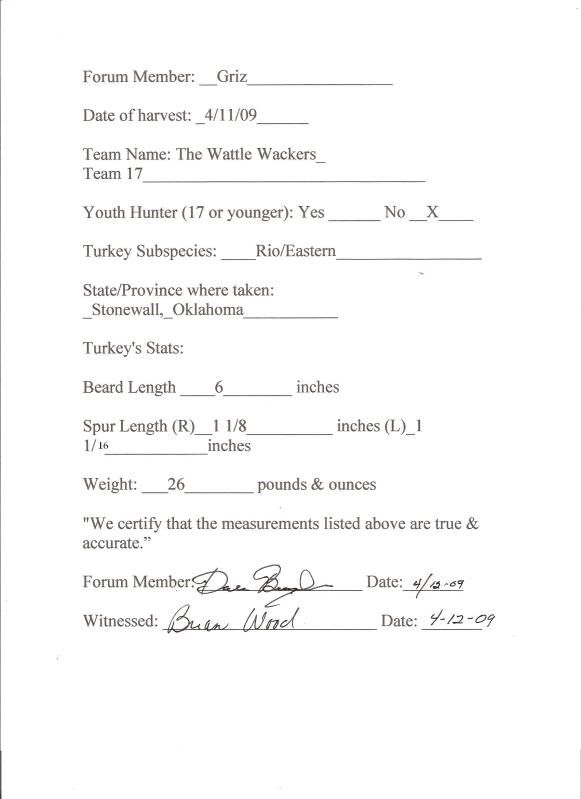 Forum Member: __Griz_________________
Date of harvest: _4/11/09______
Team Name: The Wattle Wackers_
Team 17_________________________________
Youth Hunter (17 or younger): Yes ______ No __X____
Turkey Subspecies: ____Rio/Eastern_________________
State/Province where taken:
_Stonewall,_Oklahoma___________
Turkey's Stats:
Beard Length ____6________ inches
Spur Length (R)__1 1/8__________ inches (L)_1
1/16____________inches
Weight: ___26________ pounds & ounces
"We certify that the measurements listed above are true &
accurate.”
Forum Member: Date: 4/12-09
Witnessed: Brian Wood Date: 4-12-09